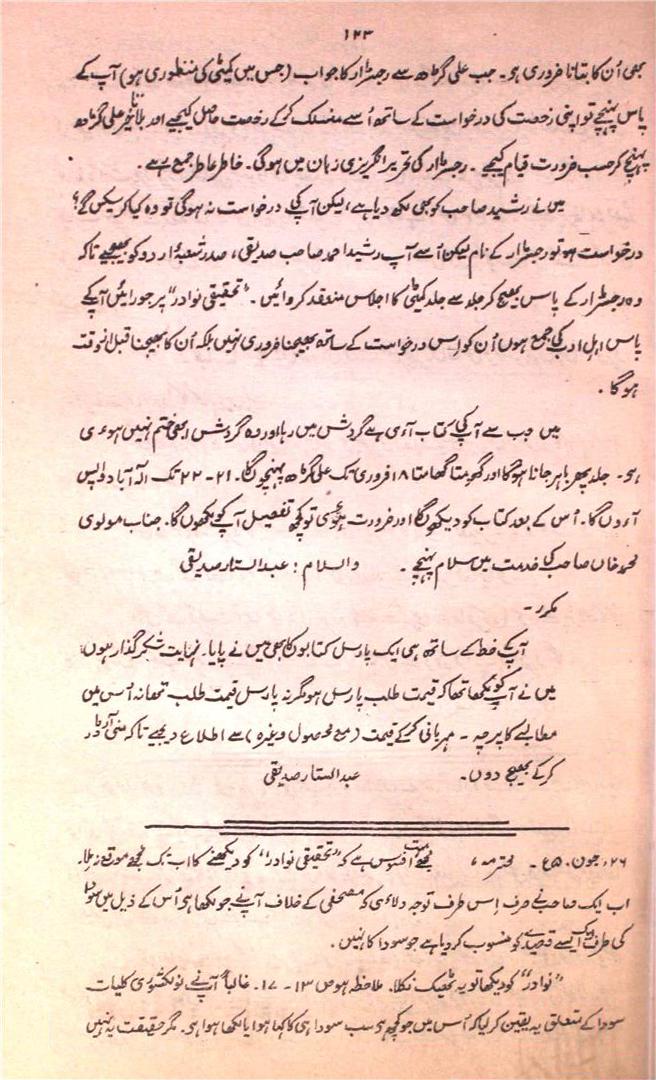 ۱۲۳
بھی اُن کا بتانا ضروری ہو۔ جب علی گڑھ سے رجسٹرار کا جواب (جس میں کمیٹی کی منظوری ہو) آپ کے
پاس پہنچے تو اپنی رخصت کی درخواست کے ساتھ اُسے منسلک کرکے رخصت حاصل کیجیے اور بلا تاخیر علی گڑھ
پہنچ کر حسب ضرورت قیام کیجیے۔ رجسٹرار کی تحریر انگریزی زبان میں ہوگی۔ خاطر عاطر جمع رہے۔
میں نے رشید صاحب کو بھی لکھ دیا ہے، لیکن آپ کی درخواست نہ ہوگی تو وہ کیا کر سکیں گے؟
درخواست ہو تو رجسٹرار کے نام لیکن اُسے آپ رشید احمد صاحب صدیقی، صدر شعبۂ اردو کو بھیجیے تاکہ
وہ رجسٹرار کے پاس بھیج کر جلد سے جلد کمیٹی کا اجلاس منعقد کروائیں۔ "تحقیقی نوادر" پر جو رائیں آپ کے
پاس اہلِ ادب کی جمع ہوں اُن کو اِس درخواست کے ساتھ بھیجنا ضروری نہیں بلکہ اُن کا بھیجنا قبل از وقت
ہوگا۔
میں جب سے آپ کی کتاب آءی ہے گردش میں رہا اور وہ گردش ابھی ختم نہیں ہوءی
ہے۔ جلد پھر باہر جانا ہوگا اور گھومتا گھامتا ۱۸ فروری تک علی گڑھ پہنچوں گا۔ ۲۱ - ۲۲ تک الٰہ آباد واپس
آءوں گا۔ اُس کے بعد کتاب کو دیکھوں گا اور ضرورت ہوءی تو کچھ تفصیل آپ کو لکھوں گا۔ جناب مولوی
محمد خاں صاحب کی خدمت میں سلام پہنچے۔ والسلام: عبدالستار صدیقی
مکرر۔
آپ کے خط کے ساتھ ہی ایک پارسل کتابوں کا بھی میں نے پایا۔ نہایت شکر گذار ہوں
میں نے آپ کو لکھا تھا کہ قیمت طلب پارسل ہو مگر نہ پارسل قیمت طلب تھا نہ اُس میں
مطالبے کا پرچہ۔ مہربانی کرکے قیمت (مع محصول وغیرہ) سے اطلاع دیجیے تاکہ منی آرڈر
کرکے بھیج دوں۔ عبدالستار صدیقی
۲۶، جون ۵۰ء۔ محترمہ، مجھے بہت افسوس ہے کہ "تحقیقی نوادر" کو دیکھنے کا اب تک مجھے موقع نہ ملا۔
اب ایک صاحب نے صرف اِس طرف توجہ دلاءی کہ مصحفی کے خلاف آپ نے جو لکھا ہی اُس کے ذیل میں سودا
کی طرف ایک ایسے قصیدے کو منسوب کر دیا ہے جو سودا کا نہیں۔
"نوادر" کو دیکھا تو یہ ٹھیک نکلا۔ ملاحظہ ہو ص ۱۳ - ۱۷۔ غالباً آپ نے نولکشوری کلیات
سودا کے متعلق یہ یقین کر لیا کہ اُس میں جو کچھ ہی سب سودا ہی کا کہا ہوا یا لکھا ہوا ہی۔ مگر حقیقت یہ نہیں